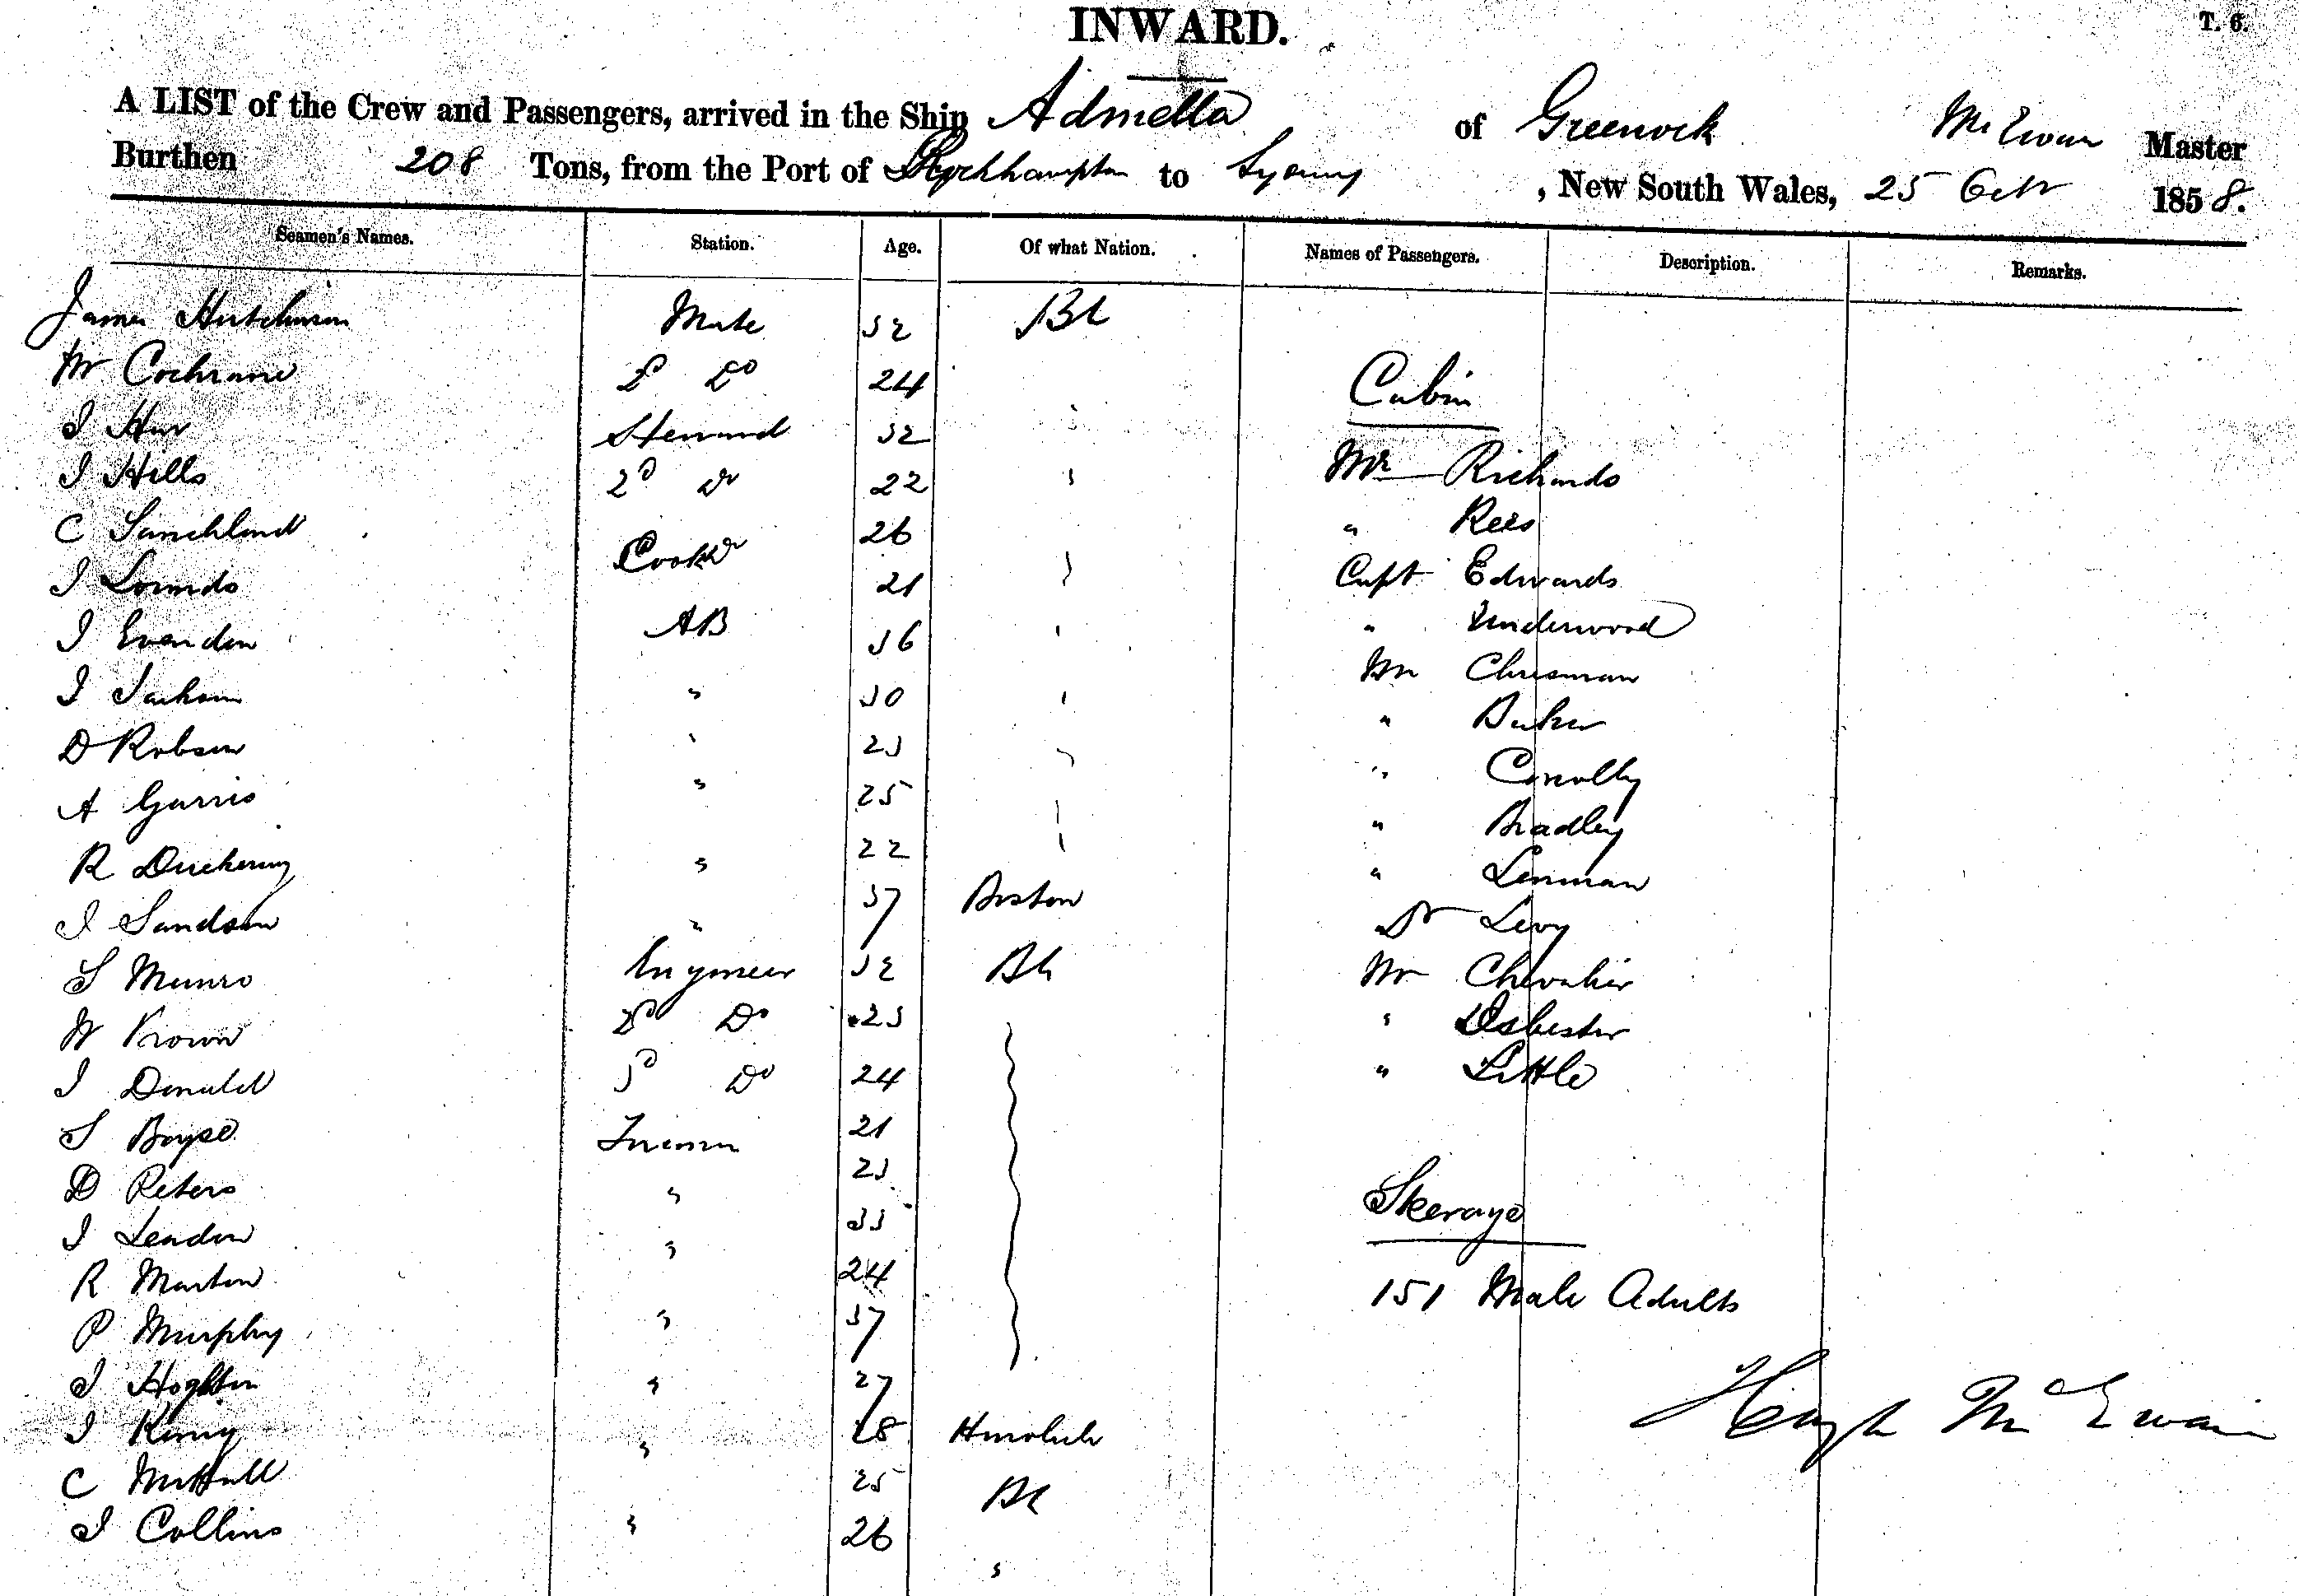 INWARD.
T. 6.
A LIST of the Crew and Passengers, arrived in the Ship Admella of Greenock McEwan Master
Burthen 208 Tons, from the Port of Rockhampton to Sydney, New South Wales, 25 Octr 1858.
Seamen's Names. Station. Age. Of what Nation. Names of Passengers. Description. Remarks.
James Hutchison Mate 32 Bh
Wm Cochrane 2d Do 24 Cabin
J Steward 32 "
J Hills 2d Do 22 " Mr Richards
C 26 " Rees
J Lounds Cook 21 Capt Edwards
J Evenden AB 36 " " Underwood
J Jackson " 30 " Mr Chrisman
D Robson " 23 " " Baker
A Garris " 25 " " Conolly
R Duckering " 22 " " Bradley
J Sandson " 37 Boston " Lenman
Dr Levy
S Munro Engineer 32 Bh Mr Chevalier
W Brown 2d Do 23 " Isbester
J Donald 3d Do 24 " Little
S Boyse Firemen 21
D Peters " 23 Steerage
J Leadon " 33
R Marton 24 151 Male Adults
P Murphy " 37
J Hoghton " 27 Hugh McEwan
J Kenny " 28 Honolulu
C 25 Bh
J Collins " 26 "